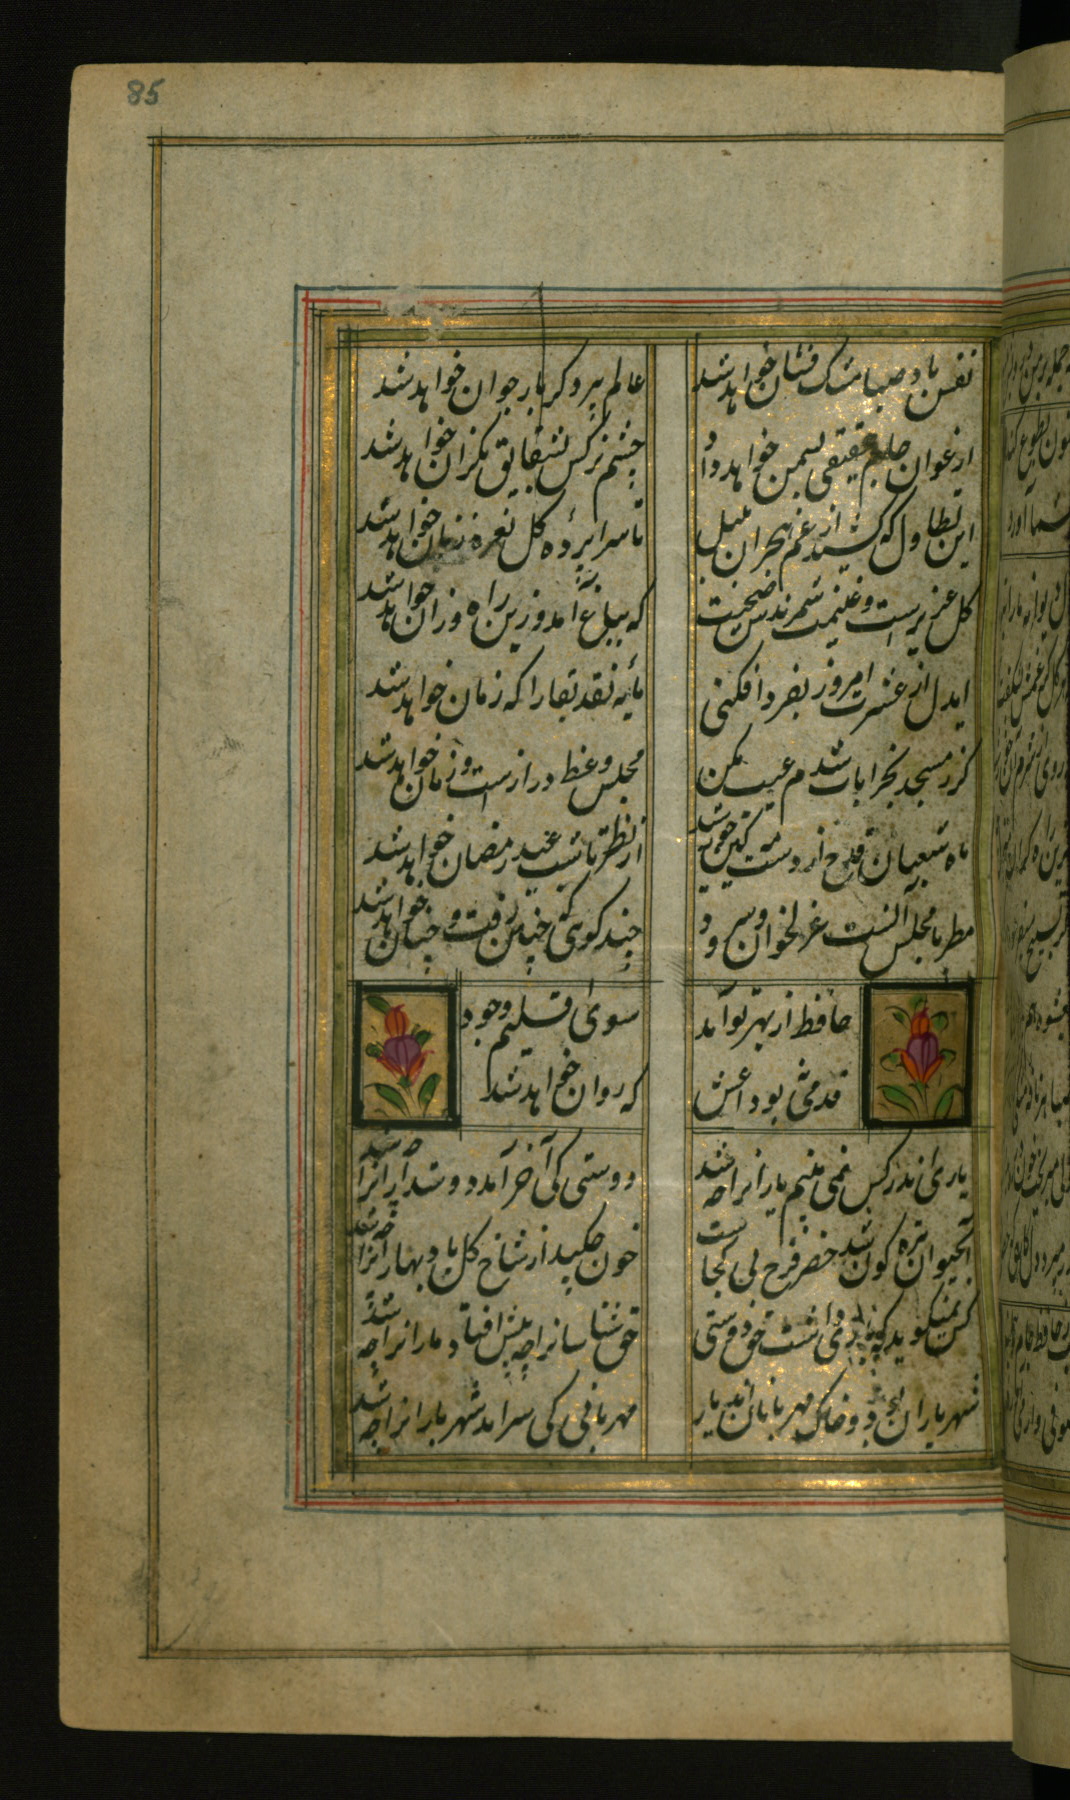 85
نفس باد صبا مشک فشان خواهد شد
عالم پیر دگر باره جوان خواهد شد
ارغوان جام عقیقی بسمن خواهد داد
چشم نرکس بشقایق نکران خواهد شد
این تطاول که کشید از غم هجران بلبل
تا سرا پردهٔ کل نعره زنان خواهد شد
کل عزیزست و غنیمت شمریدش صحبت
که بباغ آمد و زین راه و زان خواهد شد
ایدل از عشرت امروز بفردا فکنی
مایهٔ نقد بقا را که زمان خواهد شد
کر ز مسجد بخرابات شدم عیب مکن
مجلس وعظ درازست و زمان خواهد شد
ماه شعبان قدح از دست کین خورشید
از نظر تا شب عید رمضان خواهد شد
مطربا مجلس انست غزلخوان و سرود
چند کوئی که چنین رفت و چنان خواهد شد
حافظ از بهر تو آمد
سوی اقلیم وجود
قدمی بوداعش
که روان خواهد شد
یاری اندر کس نمی بینم یارانرا چه شد
دوستی کی آخر آمد دوستدارانرا چه شد
آبحیوان تیره کون شد خضر فرخ پی کجاست
خون چکید از شاخ کل باد بهارانرا چه شد
کس نمیکوید که یاری داشت حق دوستی
حق شناسانرا چه پیش افتاد و مارانرا چه شد
شهر یاران بود و خاک مهربانان این دیار
مهربانی کی سر آمد شهر یارانرا چه شد